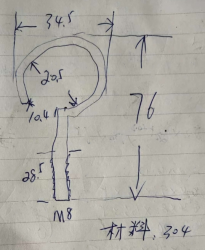 34.5
20.5
76
10.4
28.5
M8
材料.304